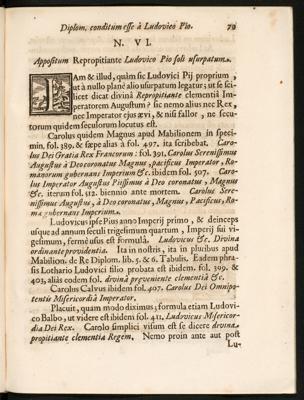 Diplom. conditum esse à Ludovico Pio. 79
N. VI.
Appositum Repropitiante Ludovico Pio soli usurpatum.
IAm & illud, quàm sic Ludovici Pij proprium,
ut à nullo planè alio usurpatum legatur; ut se scilicet
dicat divinâ Repropitiante clementiâ Imperatorem
Augustum? sic nemo alius nec Rex,
nec Imperator ejus ævi, & nisi fallor, ne secutorum
quidem seculorum locutus est.
Carolus quidem Magnus apud Mabilionem in specimin.
fol. 389. & sæpe aliàs à fol. 497. ita scribebat. Carolus
Dei Gratia Rex Francorum: fol. 391. Carolus Serenissimus
Augustus à Deo coronatus Magnus pacificus Imperator, Romanorum
gubernans Imperium &c. ibidem fol. 507. Carolus
Imperator Augustus Piissimus à Deo coronatus, Magnus
&c. iterum fol. 512. biennio ante mortem. Carolus Serenissimus
Augustus, à Deo coronatus, Magnus, Pacificus, Roma
gubernans Imperium.
Ludovicus ipse Pius anno Imperij primo, & deinceps
usque ad annum seculi trigesimum quartum, Imperij sui vigesimum,
fermè usus est formulâ. Ludovicus &c. Divina
ordinante providentiâ. Ita in nostris, ita in pluribus apud
Mabilion. de Re Diplom. lib. 5. & 6. Tabulis. Eadem phrasis
Lothario Ludovici filio probata est ibidem. fol. 399. &
403. aliàs eodem fol. divina præveniente clementiâ &c.
Carolus Calvus ibidem fol. 407. Carolus Dei Omnipotentis
Misericordiâ Imperator.
Placuit, quam modò diximus, formula etiam Ludovico
Balbo, ut videre est ibidem fol. 411. Ludovicus Misericordia
Dei Rex. Carolo simplici visum est se dicere divina
propitiante clementia Regem. Nemo proin ante aut post
Lu-